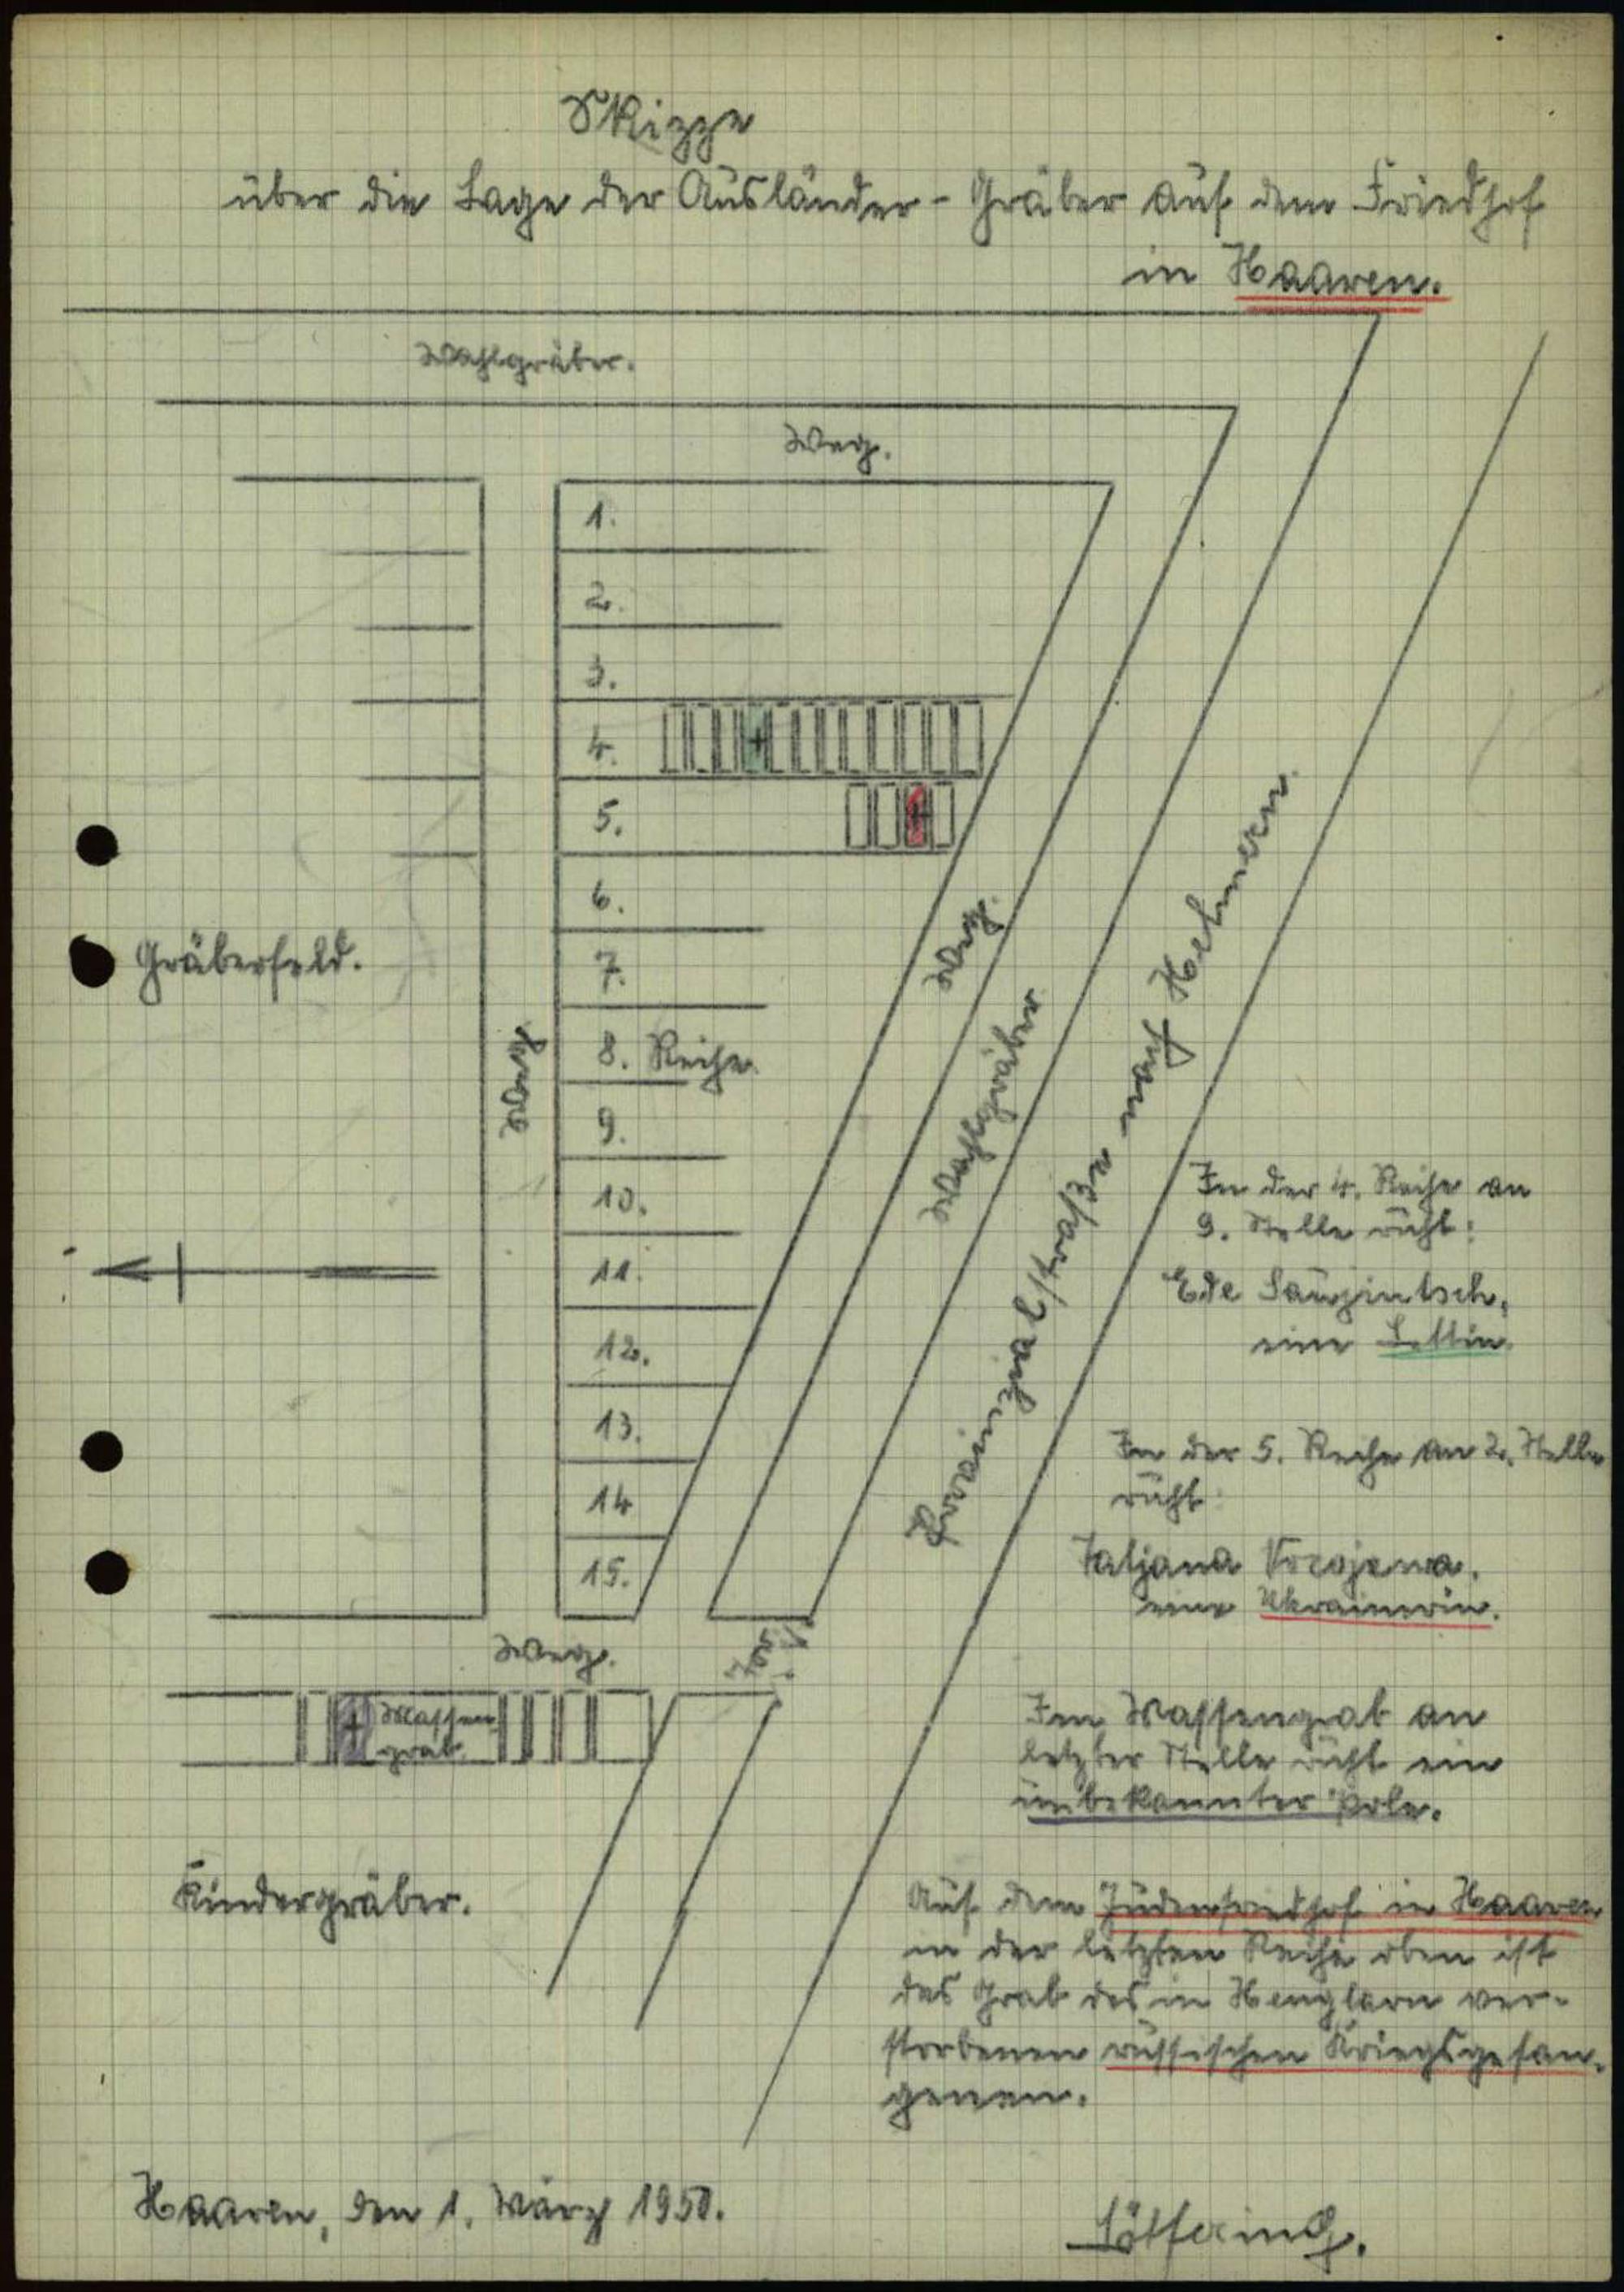 Skizze
über die Lage der Ausländer-Gräber auf dem Friedhof
in Haaren.
Wahlgräber.
Weg.
1.
2.
3.
4.
5.
6.
7.
8. Reihe.
9.
10.
11.
12.
13.
14
15.
Gräberfeld.
Weg.
Weg.
Wahlgräber
Provinzialstraße nach Helmern.
Weg.
Tor
Massen-
grab.
Kindergräber.
In der 4. Reihe an
9. Stelle ruht:
Ede
eine Lettin.
In der 5. Reihe an 2. Stelle
ruht:
Tatjana
eine Ukrainerin.
Im Massengrab an
letzter Stelle ruht ein
unbekannter Pole.
Auf dem Judenfriedhof in Haaren
in der letzten Reihe oben ist
das Grab des in Henglarn ver-
storbenen russischen Kriegsgefan-
genen.
Haaren, den 1. März 1950.